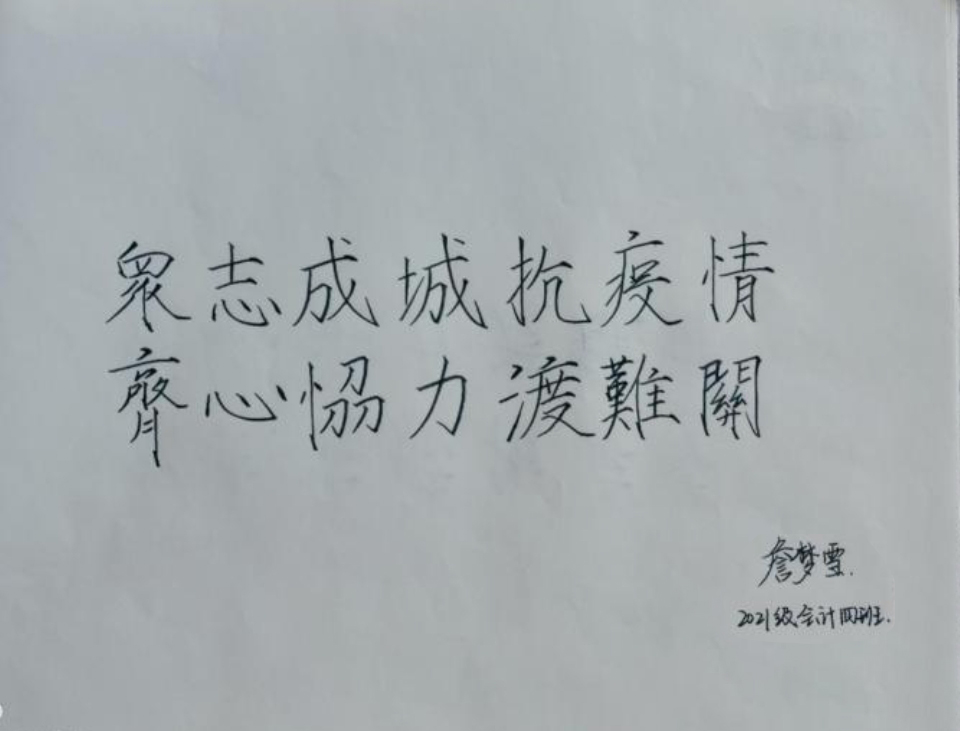 眾志成城抗疫情
齊心恊力渡難關
詹梦雪.
2021级会计四班.